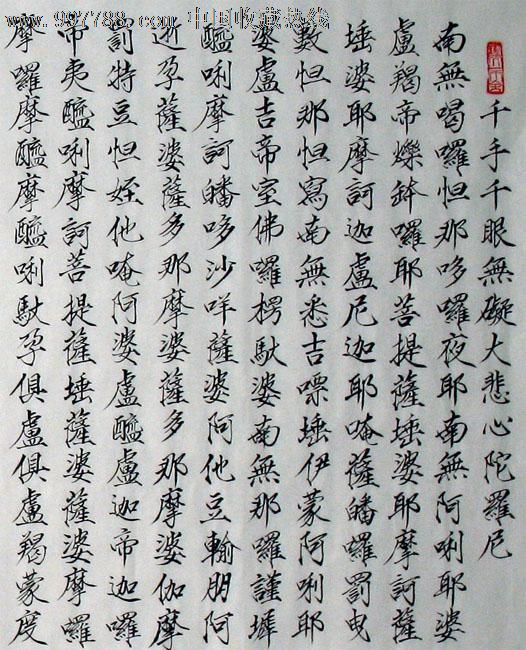 www.997788.com 中国收藏热线
千手千眼無礙大悲心陀羅尼
南無喝囉怛那哆囉夜耶南無阿唎耶婆
盧羯帝爍鉢囉耶菩提薩埵婆耶摩訶薩
埵婆耶摩訶迦盧尼迦耶唵薩皤囉罰曳
數怛那怛寫南無悉吉嘌埵伊蒙阿唎耶
婆盧吉帝室佛囉楞馱婆南無那囉謹墀
醯唎摩訶皤哆沙咩薩婆阿他豆輸朋阿
逝孕薩婆薩多那摩婆薩多那摩婆伽摩
罰特豆怛姪他唵阿婆盧醯盧迦帝迦囉
帝夷醯唎摩訶菩提薩埵薩婆薩婆摩囉
摩囉摩醯摩醯唎馱孕俱盧俱盧羯蒙度